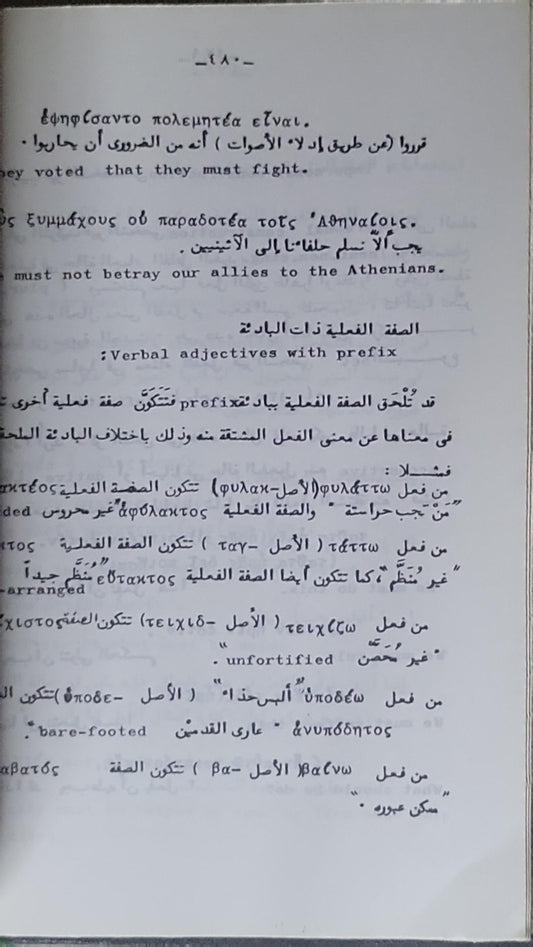 ـ٤٨٠ـ
ἐψηφίσαντο πολεμητέα εἶναι.
قرروا (عن طريق إدلاء الأصوات ) أنه من الضرورى أن يحاربوا .
ey voted that they must fight.
ξυμμάχους οὐ παραδοτέα τοῖς Ἀθηναίοις.
يجب ألاّ نسلم حلفاءنا إلى الآثينيين .
must not betray our allies to the Athenians.
الصفة الفعلية ذات البادئة
Verbal adjectives with prefix:
قد تُلْحَق الصفة الفعلية ببادئة prefix فتَتَكَوَّن صفة فعلية أخرى
فى معناها عن معنى الفعل المشتقة منه وذلك باختلاف البادئة
فمثـــلا :
من فعل φυλάττω (الأصل-φυλακ) تتكون الصفة الفعلية ακτέος
"مَنْ تجب حراسته" والصفة الفعلية ἀφύλακτος "غير محروس ded
من فعل τάττω ( الأصل –ταγ ) تتكون الصفة الفعلية κτος
"غير مُنَظَّم"، كما تتكون أيضا الصفة الفعلية εὔτακτος "مُنَظَّم جيداً
-arranged
من فعل τειχίζω ( الأصل –τειχιδ) تتكون الصفة χιστος
"غير مُحَصَّن unfortified".
من فعل ὑποδέω "ألبس حذاء" ( الأصل –ὑποδε) تتكون
ἀνυπόδητος "عارى القدمين bare-footed".
من فعل βαίνω (الأصل –βα ) تتكون الصفة αβατός
"ممكن عبوره" .